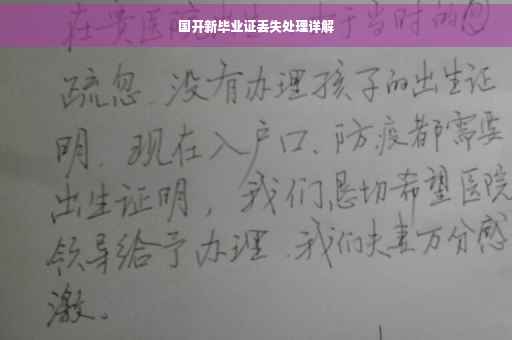 国开新毕业证丢失处理详解
在贵医院出生,由于当时的
疏忽,没有办理孩子的出生证
明,现在入户口、防疫都需要
出生证明,我们恳切希望医院
领导给予办理,我们夫妻万分感
激。